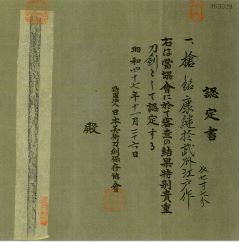 認定書
一、槍 銘 康継於武州江戸作
長七寸七分
右は當協會に於て審査の結果特別貴重
刀剣として認定する
昭和四十七年十一月二十六日
財團法人 日本美術刀剣保存協會
殿